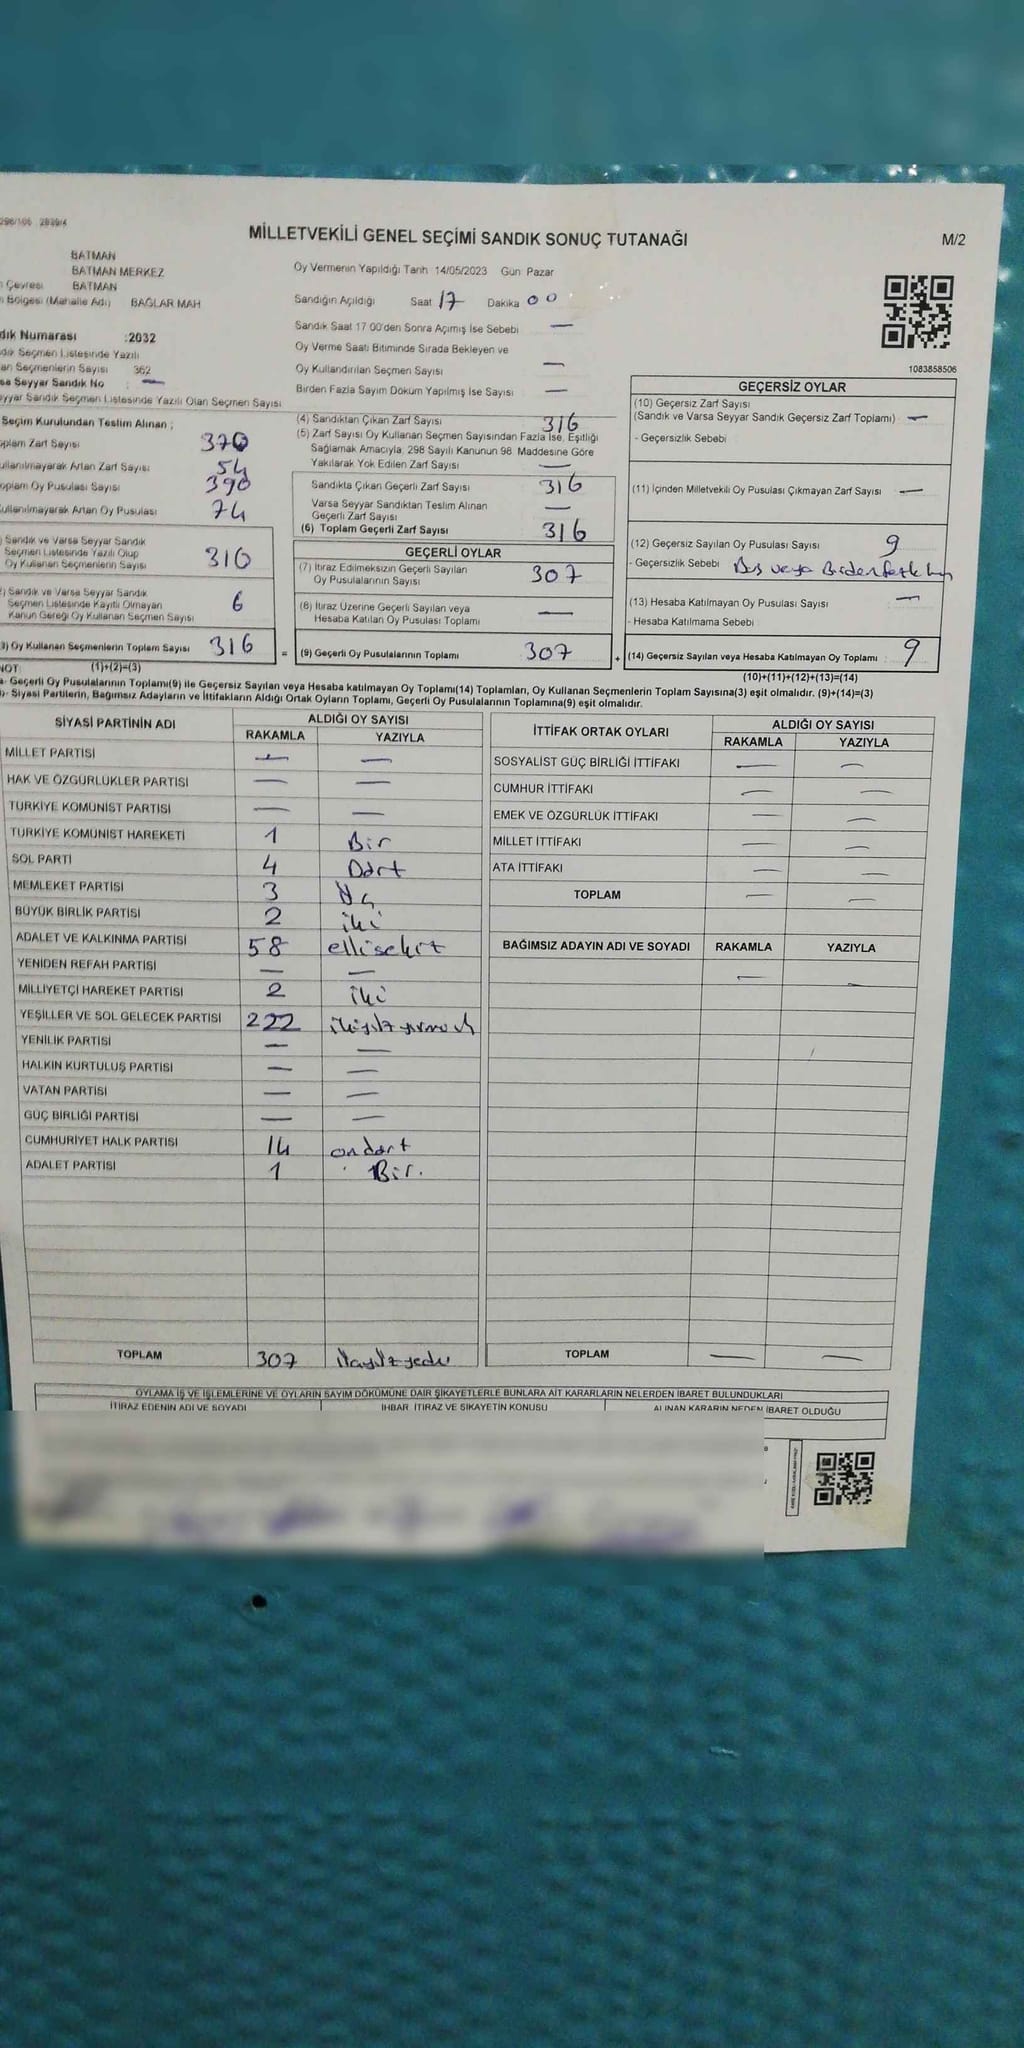 MİLLETVEKİLİ GENEL SEÇİMİ SANDIK SONUÇ TUTANAĞI
M/2
BATMAN
BATMAN MERKEZ
Çevresi BATMAN
Bölgesi (Mahalle Adı) BAĞLAR MAH
Oy Vermenin Yapıldığı Tarih 14/05/2023 Gün Pazar
Sandığın Açıldığı Saat 17 Dakika 00
Sandık Saat 17 00'den Sonra Açımış İse Sebebi —
Oy Verme Saati Bitiminde Sırada Bekleyen ve
Oy Kullandırılan Seçmen Sayısı —
Birden Fazla Sayım Döküm Yapılmış İse Sayısı —
dık Numarası :2032
dık Seçmen Listesinde Yazılı
an Seçmenlerin Sayısı 362
sa Seyyar Sandık No : —
yyar Sandık Seçmen Listesinde Yazılı Olan Seçmen Sayısı
Seçim Kurulundan Teslim Alınan ;
oplam Zarf Sayısı 370
ullanılmayarak Artan Zarf Sayısı 54
oplam Oy Pusulası Sayısı 390
ullanılmayarak Artan Oy Pusulası 74
) Sandık ve Varsa Seyyar Sandık
Seçmen Listesinde Yazılı Olup
Oy Kullanan Seçmenlerin Sayısı 310
) Sandık ve Varsa Seyyar Sandık
Seçmen Listesinde Kayıtlı Olmayan
Kanun Gereği Oy Kullanan Seçmen Sayısı 6
3) Oy Kullanan Seçmenlerin Toplam Sayısı 316
(1)+(2)=(3)
(4) Sandıktan Çıkan Zarf Sayısı 316
(5) Zarf Sayısı Oy Kullanan Seçmen Sayısından Fazla İse, Eşitliği
Sağlamak Amacıyla, 298 Sayılı Kanunun 98. Maddesine Göre
Yakılarak Yok Edilen Zarf Sayısı —
Sandıkta Çıkan Geçerli Zarf Sayısı 316
Varsa Seyyar Sandıktan Teslim Alınan
Geçerli Zarf Sayısı —
(6) Toplam Geçerli Zarf Sayısı 316
GEÇERLİ OYLAR
(7) İtiraz Edilmeksizin Geçerli Sayılan
Oy Pusulalarının Sayısı 307
(8) İtiraz Üzerine Geçerli Sayılan veya
Hesaba Katılan Oy Pusulası Toplamı —
= (9) Geçerli Oy Pusulalarının Toplamı 307
1083858506
GEÇERSİZ OYLAR
(10) Geçersiz Zarf Sayısı
(Sandık ve Varsa Seyyar Sandık Geçersiz Zarf Toplamı) —
- Geçersizlik Sebebi
(11) İçinden Milletvekili Oy Pusulası Çıkmayan Zarf Sayısı —
(12) Geçersiz Sayılan Oy Pusulası Sayısı 9
- Geçersizlik Sebebi Boş veya Birden fazla
(13) Hesaba Katılmayan Oy Pusulası Sayısı —
- Hesaba Katılmama Sebebi
+ (14) Geçersiz Sayılan veya Hesaba Katılmayan Oy Toplamı : 9
(10)+(11)+(12)+(13)=(14)
NOT:
a- Geçerli Oy Pusulalarının Toplamı(9) ile Geçersiz Sayılan veya Hesaba katılmayan Oy Toplamı(14) Toplamları, Oy Kullanan Seçmenlerin Toplam Sayısına(3) eşit olmalıdır. (9)+(14)=(3)
b- Siyasi Partilerin, Bağımsız Adayların ve İttifakların Aldığı Ortak Oyların Toplamı, Geçerli Oy Pusulalarının Toplamına(9) eşit olmalıdır.
SİYASİ PARTİNİN ADI ALDIĞI OY SAYISI
RAKAMLA YAZIYLA
MİLLET PARTİSİ — —
HAK VE ÖZGÜRLÜKLER PARTİSİ — —
TÜRKİYE KOMÜNİST PARTİSİ — —
TÜRKİYE KOMÜNİST HAREKETİ 1 Bir
SOL PARTİ 4 Dört
MEMLEKET PARTİSİ 3 Üç
BÜYÜK BİRLİK PARTİSİ 2 iki
ADALET VE KALKINMA PARTİSİ 58 ellisekiz
YENİDEN REFAH PARTİSİ — —
MİLLİYETÇİ HAREKET PARTİSİ 2 iki
YEŞİLLER VE SOL GELECEK PARTİSİ 222
YENİLİK PARTİSİ — —
HALKIN KURTULUŞ PARTİSİ — —
VATAN PARTİSİ — —
GÜÇ BİRLİĞİ PARTİSİ — —
CUMHURİYET HALK PARTİSİ 14 ondört
ADALET PARTİSİ 1 Bir.
TOPLAM 307 üçyüzyedi
İTTİFAK ORTAK OYLARI ALDIĞI OY SAYISI
RAKAMLA YAZIYLA
SOSYALİST GÜÇ BİRLİĞİ İTTİFAKI — —
CUMHUR İTTİFAKI — —
EMEK VE ÖZGÜRLÜK İTTİFAKI — —
MİLLET İTTİFAKI — —
ATA İTTİFAKI — —
TOPLAM — —
BAĞIMSIZ ADAYIN ADI VE SOYADI RAKAMLA YAZIYLA
— —
TOPLAM — —
OYLAMA İŞ VE İŞLEMLERİNE VE OYLARIN SAYIM DÖKÜMÜNE DAİR ŞİKAYETLERLE BUNLARA AİT KARARLARIN NELERDEN İBARET BULUNDUKLARI
İTİRAZ EDENİN ADI VE SOYADI İHBAR, İTİRAZ VE ŞİKAYETİN KONUSU ALINAN KARARIN NEDEN İBARET OLDUĞU